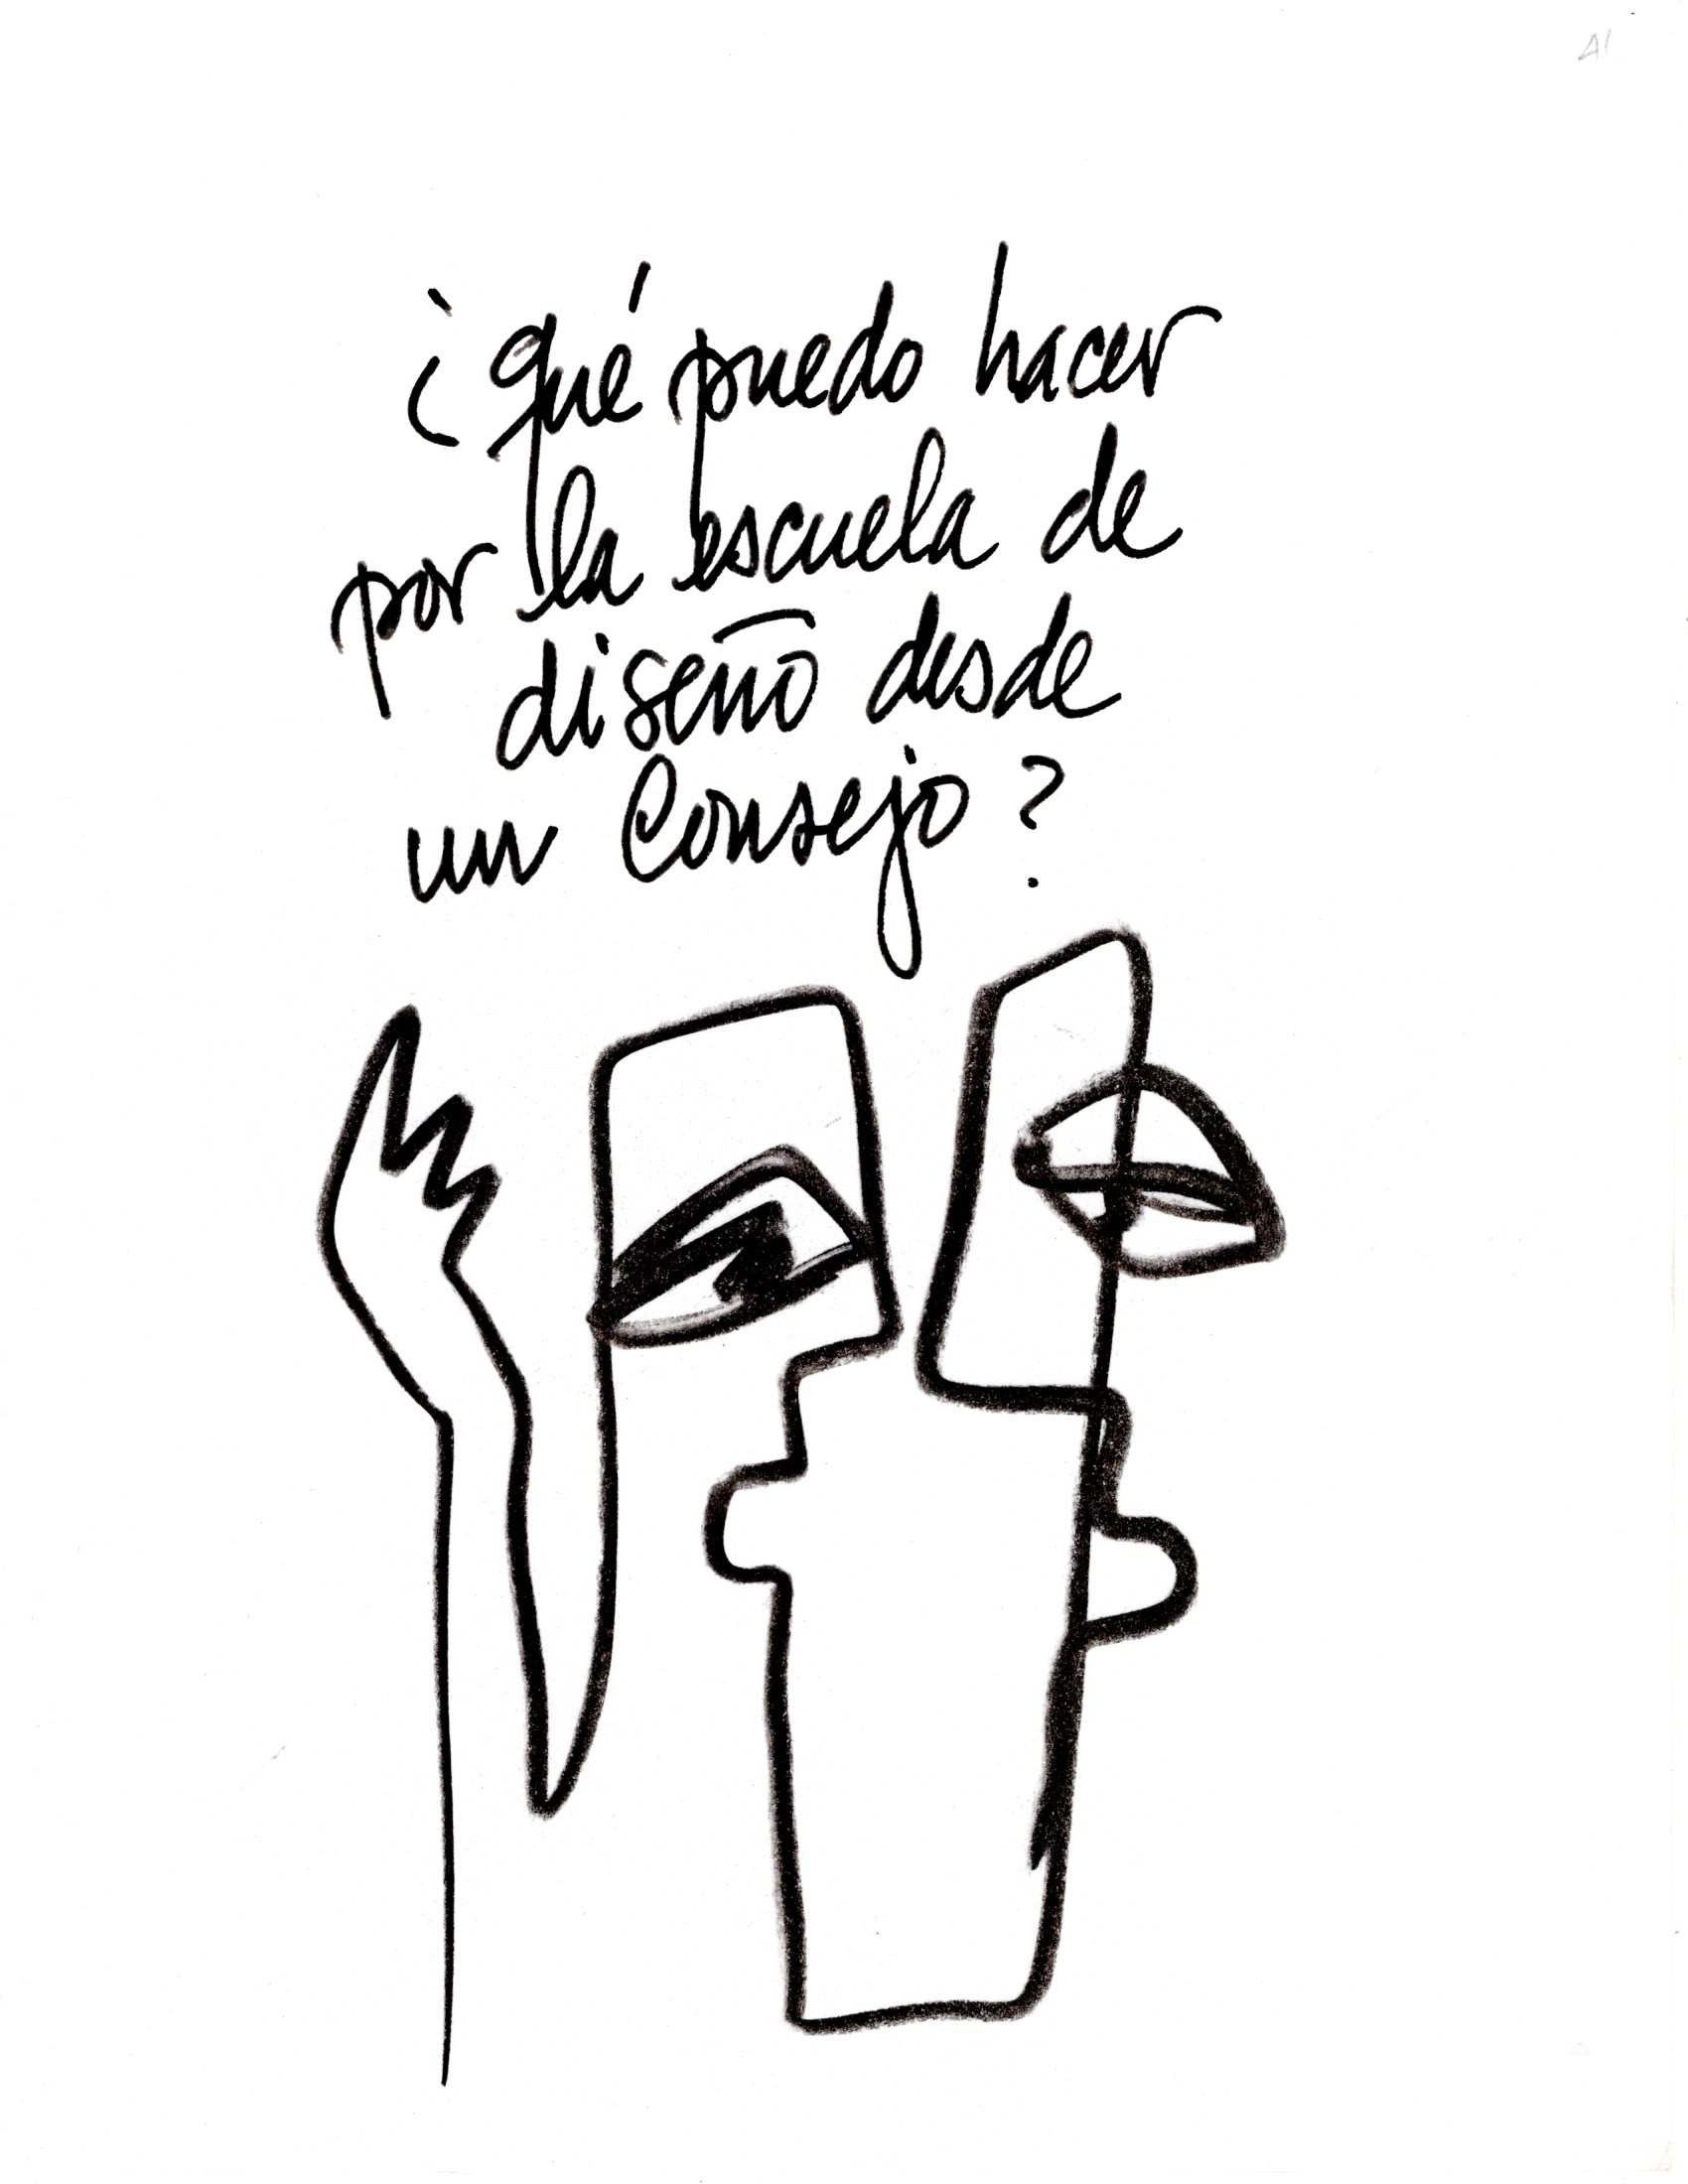 ¿qué puedo hacer
por la escuela de
diseño desde
un Consejo?